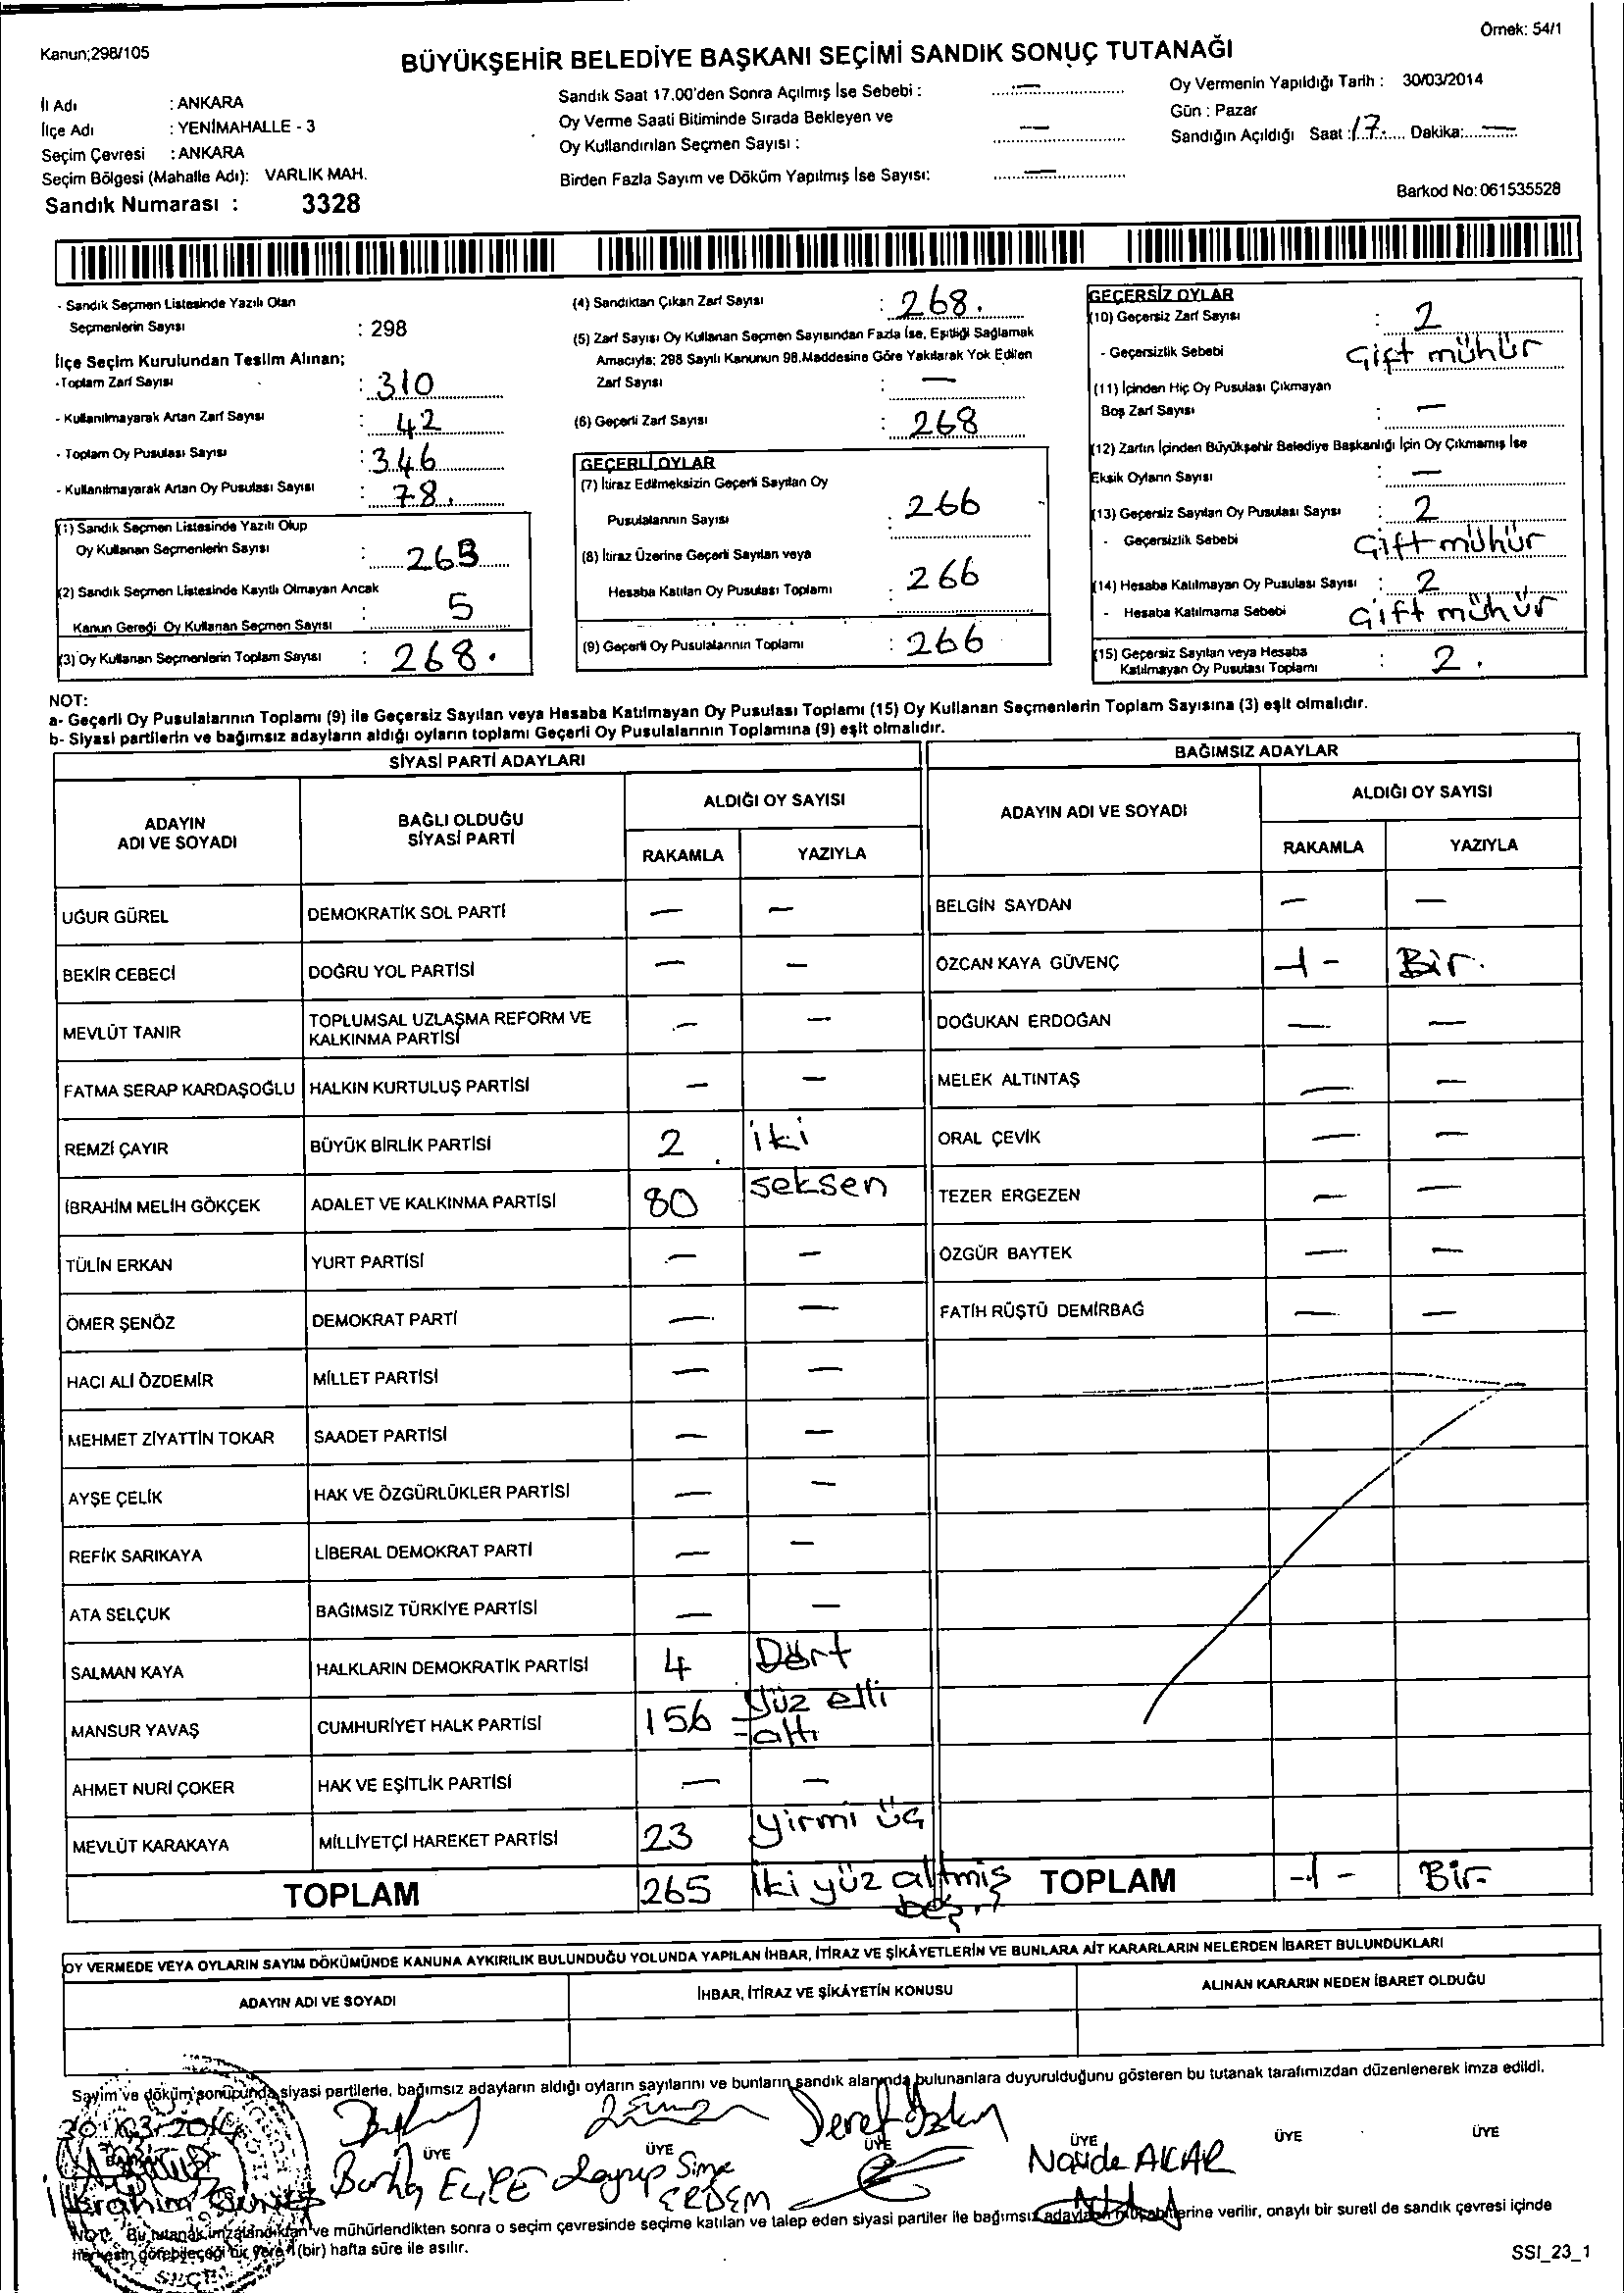 Örnek: 54/1
Kanun;298/105
BÜYÜKŞEHİR BELEDİYE BAŞKANI SEÇİMİ SANDIK SONUÇ TUTANAĞI
İl Adı : ANKARA
İlçe Adı : YENİMAHALLE - 3
Seçim Çevresi : ANKARA
Seçim Bölgesi (Mahalle Adı): VARLIK MAH.
Sandık Numarası : 3328
Sandık Saat 17.00'den Sonra Açılmış İse Sebebi : —
Oy Verme Saati Bitiminde Sırada Bekleyen ve
Oy Kullandırılan Seçmen Sayısı : —
Birden Fazla Sayım ve Döküm Yapılmış İse Sayısı: —
Oy Vermenin Yapıldığı Tarih : 30/03/2014
Gün : Pazar
Sandığın Açıldığı Saat :17 Dakika: —
Barkod No: 061535528
- Sandık Seçmen Listesinde Yazılı Olan
Seçmenlerin Sayısı : 298
İlçe Seçim Kurulundan Teslim Alınan;
- Toplam Zarf Sayısı : 310
- Kullanılmayarak Artan Zarf Sayısı : 42
- Toplam Oy Pusulası Sayısı : 346
- Kullanılmayarak Artan Oy Pusulası Sayısı : 78.
(1) Sandık Seçmen Listesinde Yazılı Olup
Oy Kullanan Seçmenlerin Sayısı : 263
(2) Sandık Seçmen Listesinde Kayıtlı Olmayan Ancak
Kanun Gereği Oy Kullanan Seçmen Sayısı : 5
(3) Oy Kullanan Seçmenlerin Toplam Sayısı : 268.
(4) Sandıktan Çıkan Zarf Sayısı : 268.
(5) Zarf Sayısı Oy Kullanan Seçmen Sayısından Fazla İse, Eşitliği Sağlamak
Amacıyla; 298 Sayılı Kanunun 98.Maddesine Göre Yakılarak Yok Edilen
Zarf Sayısı : —
(6) Geçerli Zarf Sayısı : 268
GEÇERLİ OYLAR
(7) İtiraz Edilmeksizin Geçerli Sayılan Oy
Pusulalarının Sayısı : 266
(8) İtiraz Üzerine Geçerli Sayılan veya
Hesaba Katılan Oy Pusulası Toplamı : 266
(9) Geçerli Oy Pusulalarının Toplamı : 266
GEÇERSİZ OYLAR
(10) Geçersiz Zarf Sayısı : 2
- Geçersizlik Sebebi Çift mühür
(11) İçinden Hiç Oy Pusulası Çıkmayan
Boş Zarf Sayısı : —
(12) Zarfın İçinden Büyükşehir Belediye Başkanlığı İçin Oy Çıkmamış İse
Eksik Oyların Sayısı : —
(13) Geçersiz Sayılan Oy Pusulası Sayısı : 2
- Geçersizlik Sebebi Çift mühür
(14) Hesaba Katılmayan Oy Pusulası Sayısı : 2
- Hesaba Katılmama Sebebi Çift mühür
(15) Geçersiz Sayılan veya Hesaba
Katılmayan Oy Pusulası Toplamı : 2.
NOT:
a- Geçerli Oy Pusulalarının Toplamı (9) ile Geçersiz Sayılan veya Hesaba Katılmayan Oy Pusulası Toplamı (15) Oy Kullanan Seçmenlerin Toplam Sayısına (3) eşit olmalıdır.
b- Siyasi partilerin ve bağımsız adayların aldığı oyların toplamı Geçerli Oy Pusulalarının Toplamına (9) eşit olmalıdır.
SİYASİ PARTİ ADAYLARI
ADAYIN
ADI VE SOYADI
BAĞLI OLDUĞU
SİYASİ PARTİ
ALDIĞI OY SAYISI
RAKAMLA YAZIYLA
UĞUR GÜREL DEMOKRATİK SOL PARTİ — —
BEKİR CEBECİ DOĞRU YOL PARTİSİ — —
MEVLÜT TANIR TOPLUMSAL UZLAŞMA REFORM VE
KALKINMA PARTİSİ — —
FATMA SERAP KARDAŞOĞLU HALKIN KURTULUŞ PARTİSİ — —
REMZİ ÇAYIR BÜYÜK BİRLİK PARTİSİ 2 iki
İBRAHİM MELİH GÖKÇEK ADALET VE KALKINMA PARTİSİ 80 seksen
TÜLİN ERKAN YURT PARTİSİ — —
ÖMER ŞENÖZ DEMOKRAT PARTİ — —
HACI ALİ ÖZDEMİR MİLLET PARTİSİ — —
MEHMET ZİYATTİN TOKAR SAADET PARTİSİ — —
AYŞE ÇELİK HAK VE ÖZGÜRLÜKLER PARTİSİ — —
REFİK SARIKAYA LİBERAL DEMOKRAT PARTİ — —
ATA SELÇUK BAĞIMSIZ TÜRKİYE PARTİSİ — —
SALMAN KAYA HALKLARIN DEMOKRATİK PARTİSİ 4 Dört
MANSUR YAVAŞ CUMHURİYET HALK PARTİSİ 156 yüz elli
altı
AHMET NURİ ÇOKER HAK VE EŞİTLİK PARTİSİ — —
MEVLÜT KARAKAYA MİLLİYETÇİ HAREKET PARTİSİ 23 yirmi üç
TOPLAM 265 iki yüz altmış
beş
BAĞIMSIZ ADAYLAR
ADAYIN ADI VE SOYADI
ALDIĞI OY SAYISI
RAKAMLA YAZIYLA
BELGİN SAYDAN — —
ÖZCAN KAYA GÜVENÇ -1- Bir.
DOĞUKAN ERDOĞAN — —
MELEK ALTINTAŞ — —
ORAL ÇEVİK — —
TEZER ERGEZEN — —
ÖZGÜR BAYTEK — —
FATİH RÜŞTÜ DEMİRBAĞ — —
TOPLAM -1- Bir-
OY VERMEDE VEYA OYLARIN SAYIM DÖKÜMÜNDE KANUNA AYKIRILIK BULUNDUĞU YOLUNDA YAPILAN İHBAR, İTİRAZ VE ŞİKÂYETLERİN VE BUNLARA AİT KARARLARIN NELERDEN İBARET BULUNDUKLARI
ADAYIN ADI VE SOYADI
İHBAR, İTİRAZ VE ŞİKÂYETİN KONUSU
ALINAN KARARIN NEDEN İBARET OLDUĞU
Sayim ve döküm sonucunda siyasi partilerle, bağımsız adayların aldığı oyların sayılarını ve bunların sandık alanında bulunanlara duyurulduğunu gösteren bu tutanak tarafımızdan düzenlenerek imza edildi.
30.03.2014
ÜYE ÜYE ÜYE ÜYE ÜYE ÜYE
Şeref Özkan
İbrahim
Zeynep Sima
ERDEM
AKAR
NOT: Bu tutanak imzalandıktan ve mühürlendikten sonra o seçim çevresinde seçime katılan ve talep eden siyasi partiler ile bağımsız adayların müşahitlerine verilir, onaylı bir sureti de sandık çevresi içinde
herkesin görebileceği bir yere 1 (bir) hafta süre ile asılır.
SSI_23_1